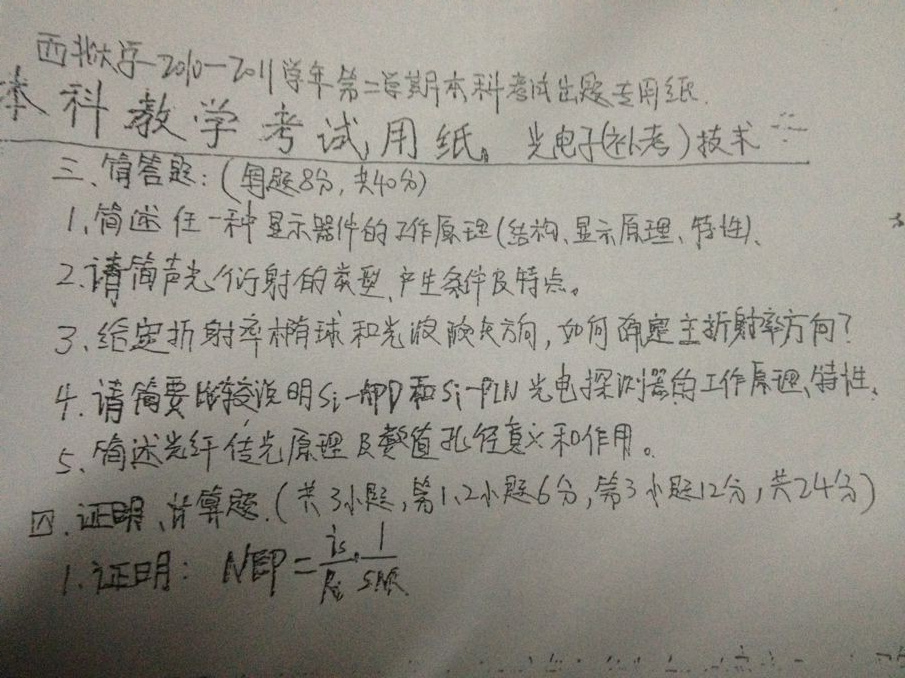 西北大学2010-2011学年第二学期本科考试出题专用纸.
本科教学考试用纸。光电子(补考)技术
三、简答题:(每题8分,共40分)
1.简述任一种显示器件的工作原理(结构、显示原理、特性)、
2.请简声光衍射的类型、产生条件及特点。
3、给定折射率椭球和光波波矢方向,如何确定主折射率方向?
4.请简要比较说明Si-APD和Si-PIN光电探测器的工作原理、特性、
5、简述光纤传光原理及数值孔径意义和作用。
四.证明、计算题.(共3小题,第1、2小题6分,第3小题12分,共24分)
1.证明: NEP=is/Ri·1/SNR